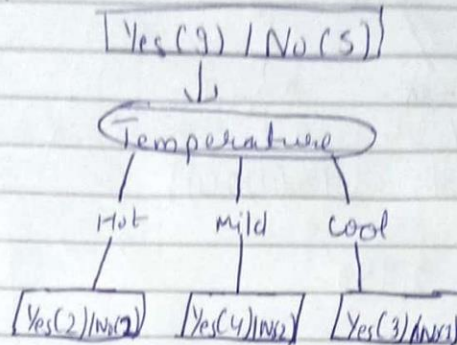 Yes(9) / No(5)
Temperature
Hot Mild Cool
Yes(2)/No(2) Yes(4)/No(2) Yes(3)/No(1)